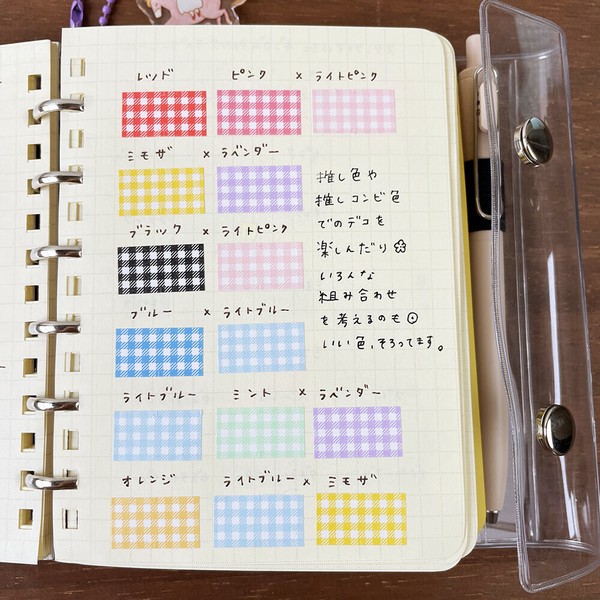 レッド ピンク × ライトピンク
ミモザ × ラベンダー
推し色や
推しコンビ色
でのデコを
楽しんだり
いろんな
組み合わせ
を考えるのも◎
いい色、そろってます。
ブラック × ライトピンク
ブルー × ライトブルー
ライトブルー ミント × ラベンダー
オレンジ ライトブルー × ミモザ